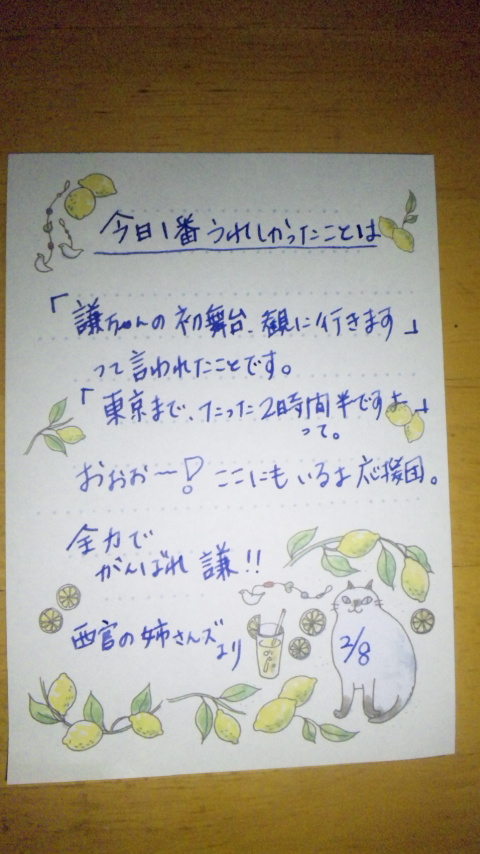 今日1番うれしかったことは
「謙ちゃんの初舞台、観に行きます」
って言われたことです。
「東京まで、たった2時間半ですよ」
って。
おぉぉー!ここにもいるよ応援団。
全力で
がんばれ 謙!!
西宮の姉さんズ
より
2/8